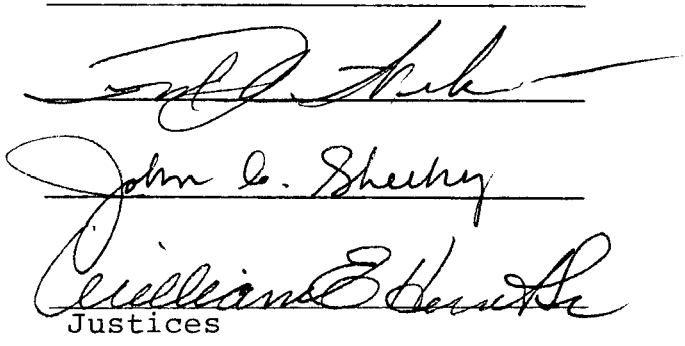 John C. Sheehy
William E Hunt Sr
Justices